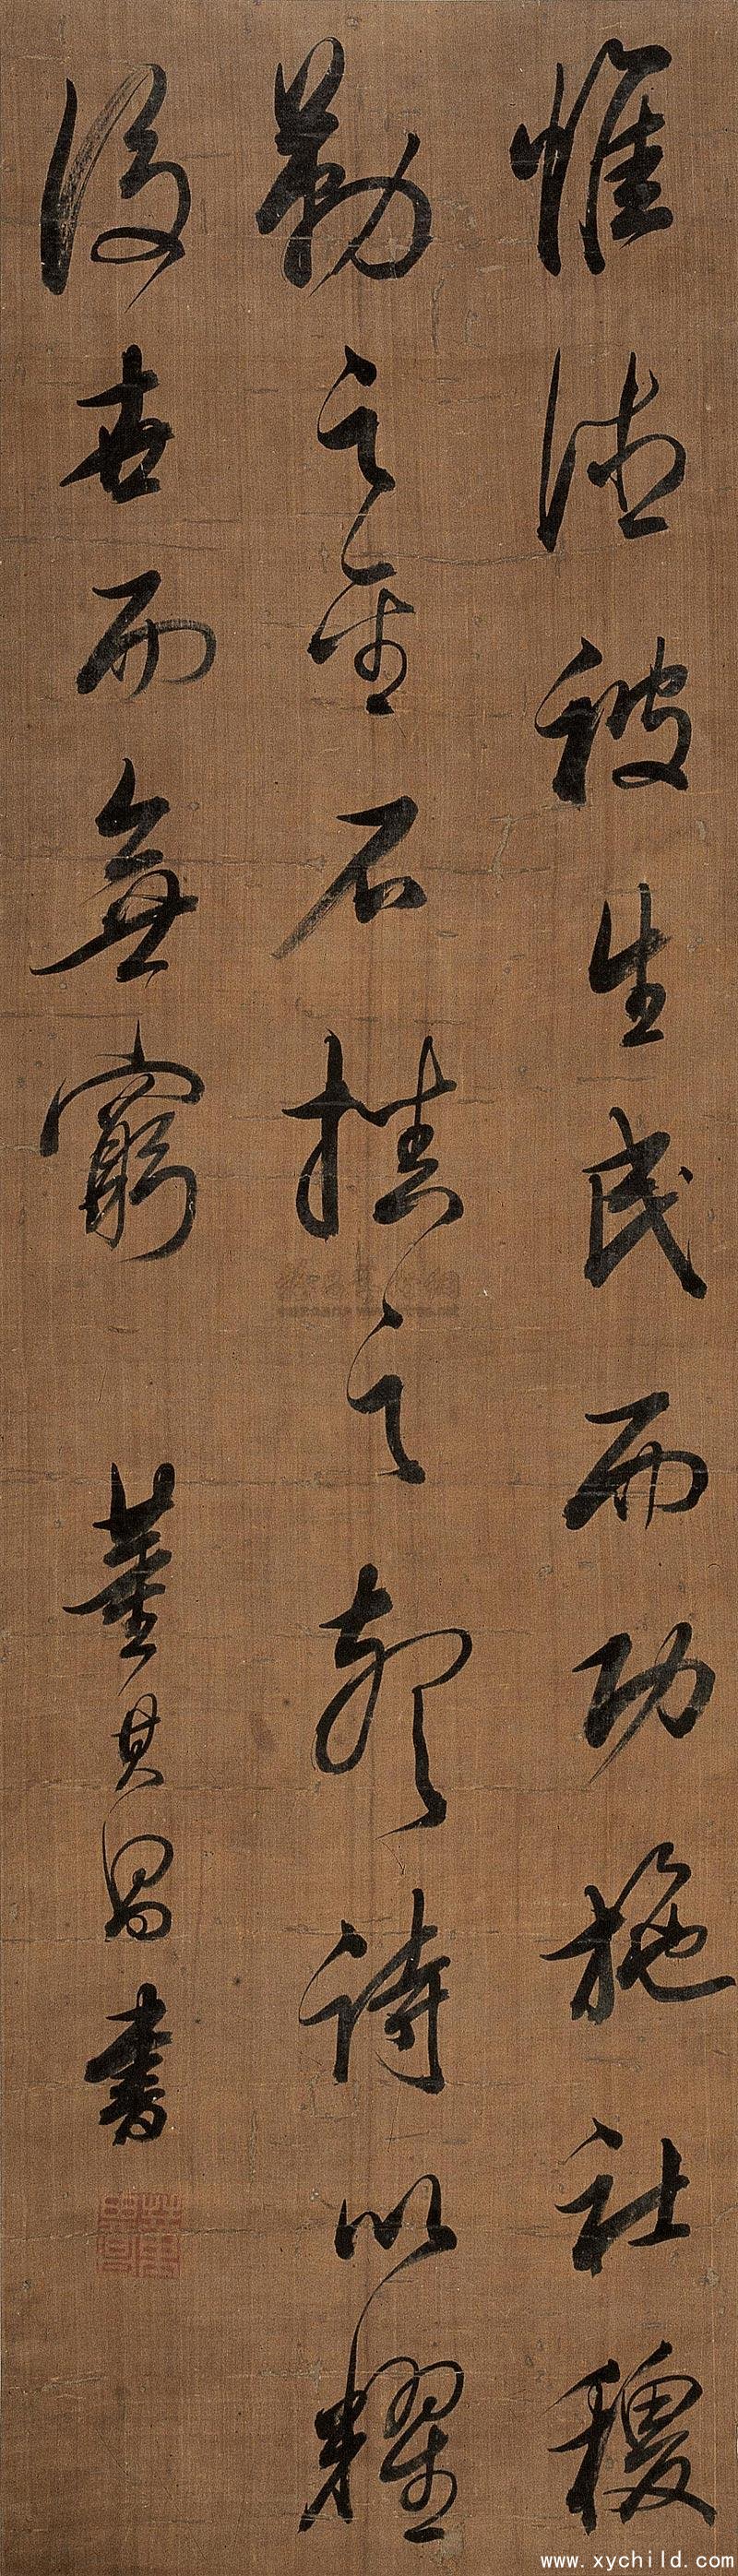 惟德被生民而功施社稷
勒之金石播之声诗以耀
後世而無窮
董其昌書
www.xychild.com